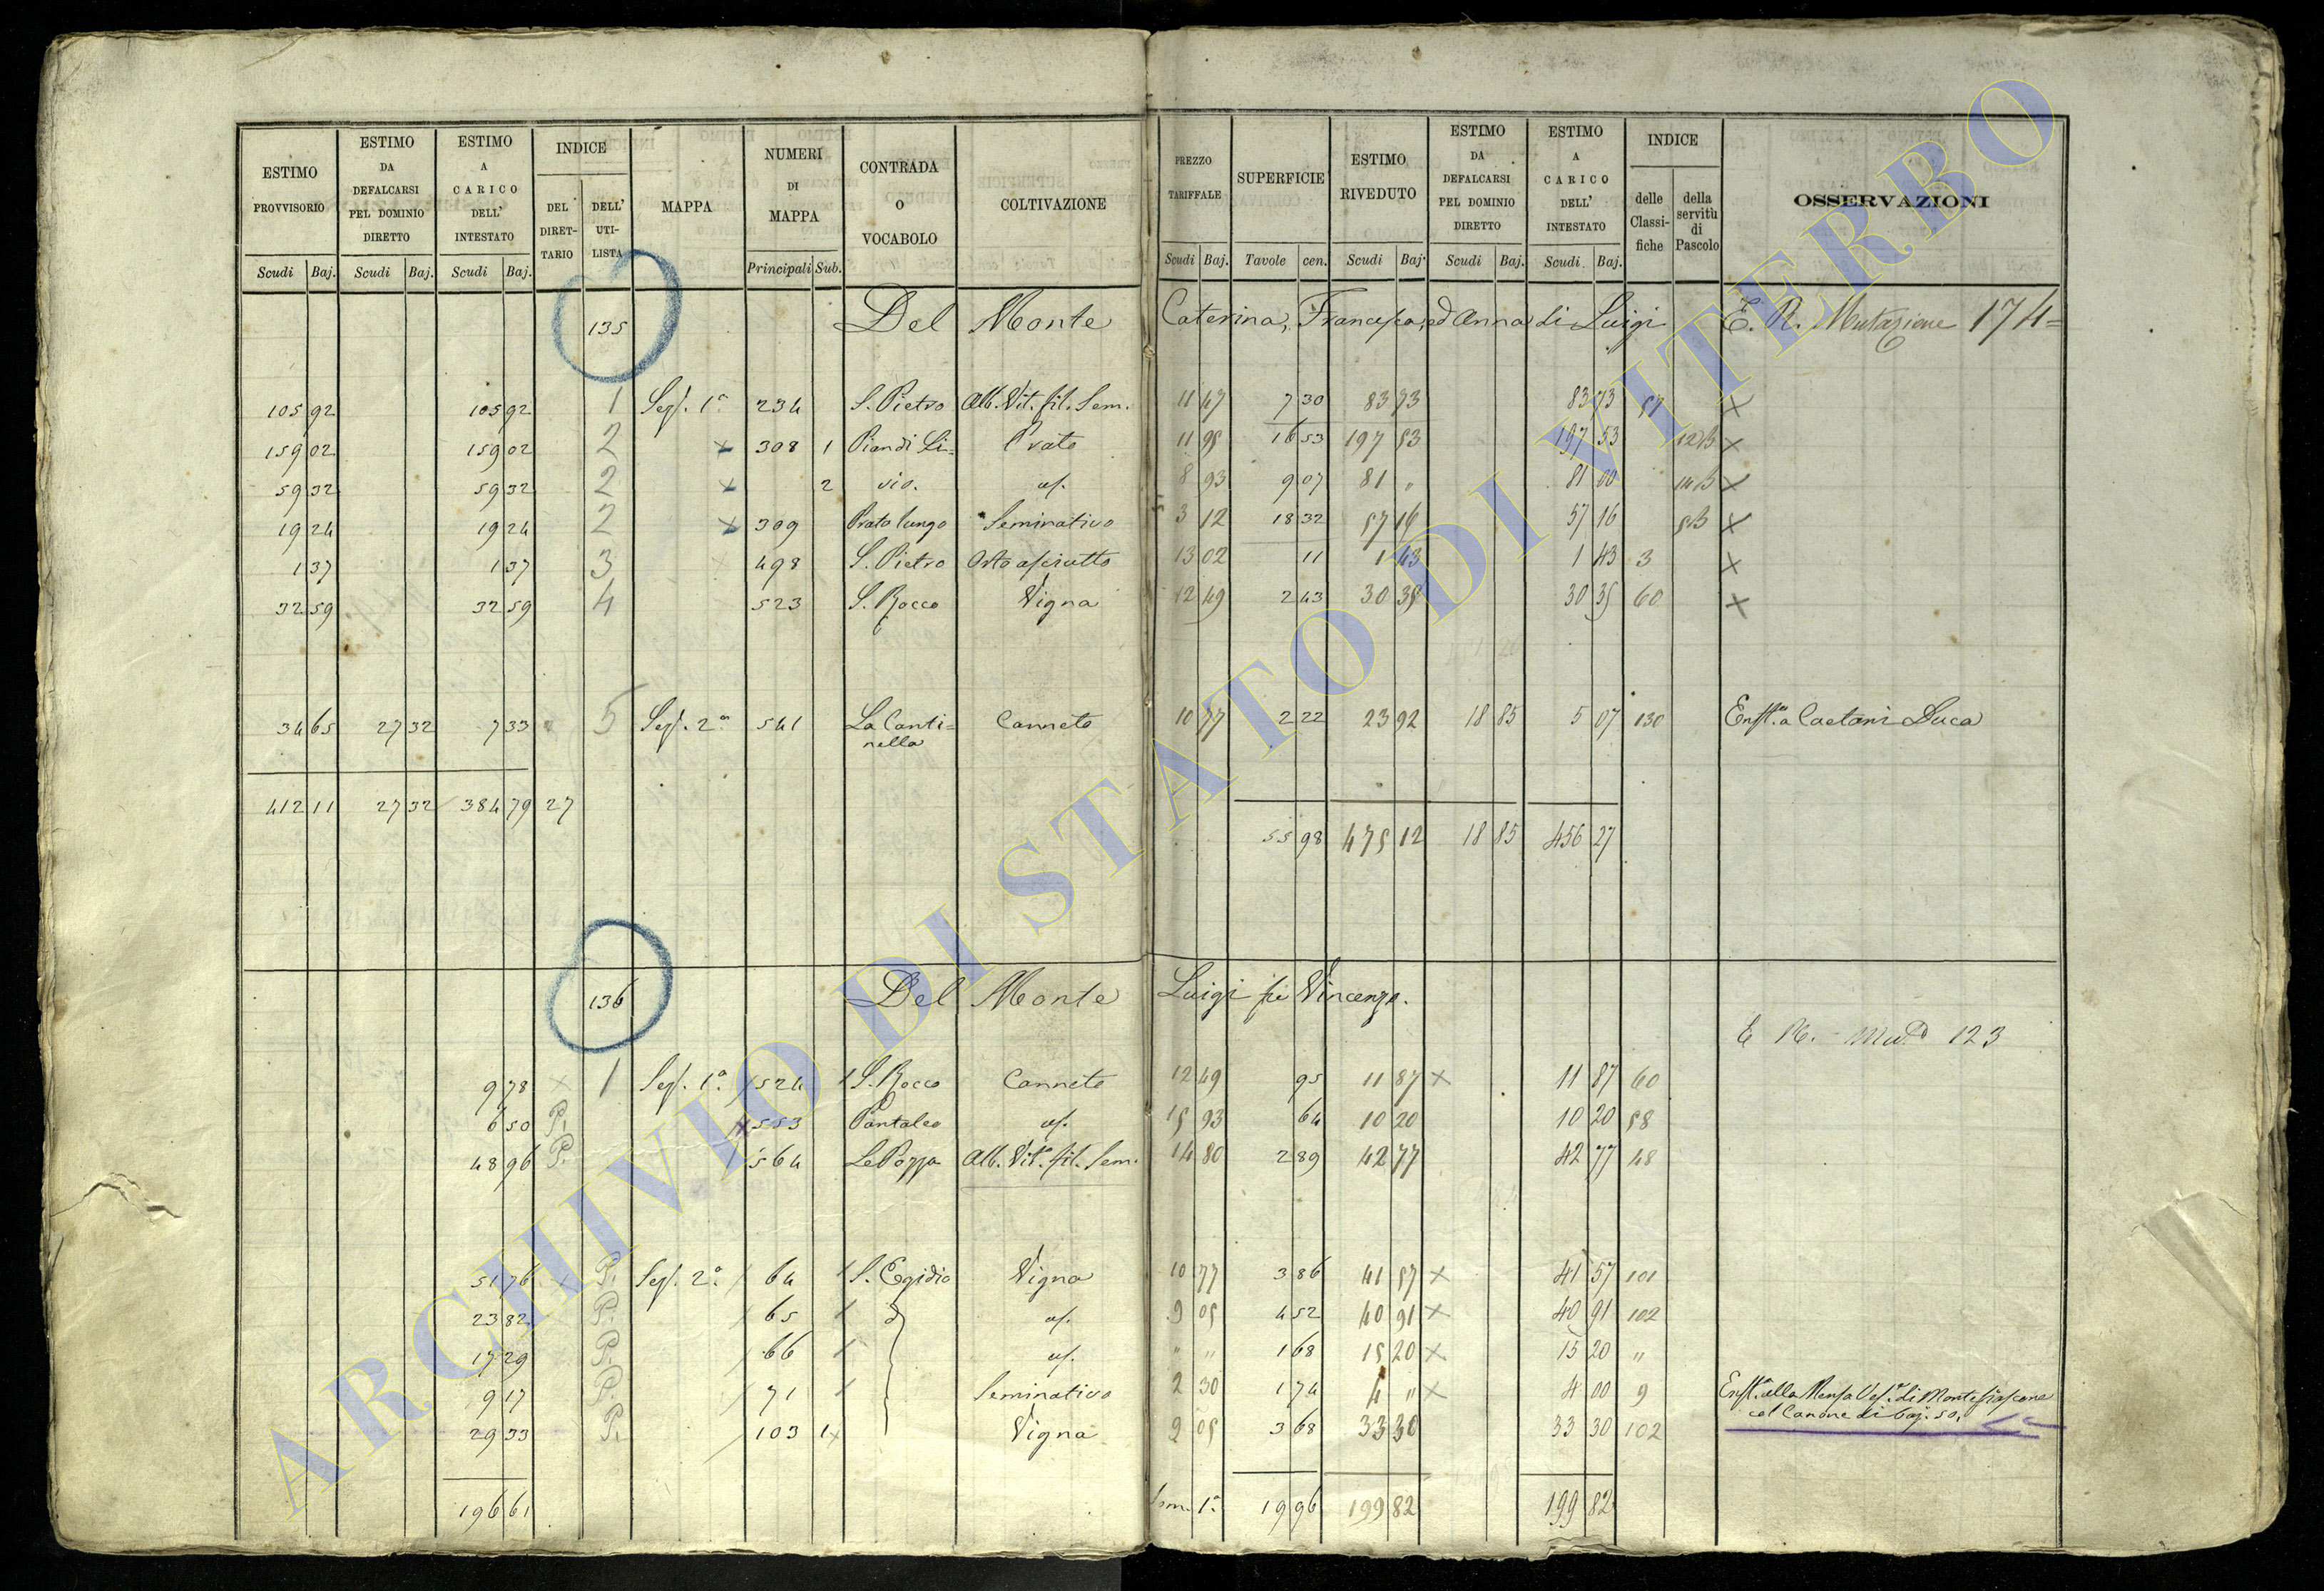 ESTIMO PROVVISORIO | ESTIMO DA DEFALCARSI PEL DOMINIO DIRETTO | ESTIMO A CARICO DELL' INTESTATO | INDICE DEL DIRET-TARIO | DELL' UTI-LISTA | MAPPA | NUMERI DI MAPPA | CONTRADA O VOCABOLO | COLTIVAZIONE | PREZZO TARIFFALE | SUPERFICIE | ESTIMO RIVEDUTO | ESTIMO DA DEFALCARSI PEL DOMINIO DIRETTO | ESTIMO A CARICO DELL' INTESTATO | INDICE delle Classi-fiche | della servitù di Pascolo | OSSERVAZIONI
Scudi Baj. Scudi Baj. Scudi Baj. Principali Sub. Scudi Baj. Tavole cen. Scudi Baj. Scudi Baj. Scudi Baj.
135 Del Monte Caterina, Francesca, ed Anna di Luigi E. R. Mutazione 174=
105 92 105 92 1 Sez. 1ª 234 S. Pietro Alb. Vit. fil. Sem. 11 47 7 30 83 73 83 73 57 X
159 02 159 02 2 x 308 1 Pian di Li= Prato 11 95 16 53 197 53 197 53 12B X
59 32 59 32 2 x 2 vio. 8 93 9 07 81 " 81 00 14B X
19 24 19 24 2 x 309 Prato lungo Seminativo 3 12 18 32 57 16 57 16 5B X
1 37 1 37 3 498 S. Pietro Orto asciutto 13 02 11 1 43 1 43 3 X
32 59 32 59 4 523 S. Rocco Vigna 12 49 2 43 30 35 30 35 60 X
34 65 27 32 7 33 5 Sez. 2ª 541 La Canti= Canneto 10 77 2 22 23 92 18 85 5 07 130 Enft.ª a Caetani Luca
nella
412 11 27 32 384 79 27
55 98 475 12 18 85 456 27
136 Del Monte Luigi fu Vincenzo.
E R. 123
9 78 x 1 Sez. 1ª 524 S. Rocco Canneto 12 49 95 11 87 x 11 87 60
6 50 P. 553 Pantaleo 15 93 64 10 20 10 20 58
48 96 P. 564 Le Pozza Alb. Vit. fil. Sem. 14 80 2 89 42 77 42 77 48
51 76 x P. Sez. 2ª 64 S. Egidio Vigna 10 77 3 86 41 57 x 41 57 101
23 82 P. 65 9 05 4 52 40 91 x 40 91 102
17 29 P. 66 " " 1 68 15 20 x 15 20 "
9 17 P. 71 Seminativo 2 30 1 74 4 " x 4 00 9 Enft.ª alla Mensa Ves.le di Montefiascone
29 33 P. 103 1 Vigna 9 05 3 68 33 30 33 30 102 col Canone di baj. 50.
196 61 Som. 1ª 19 96 199 82 199 82
ARCHIVIO DI STATO DI VITERBO